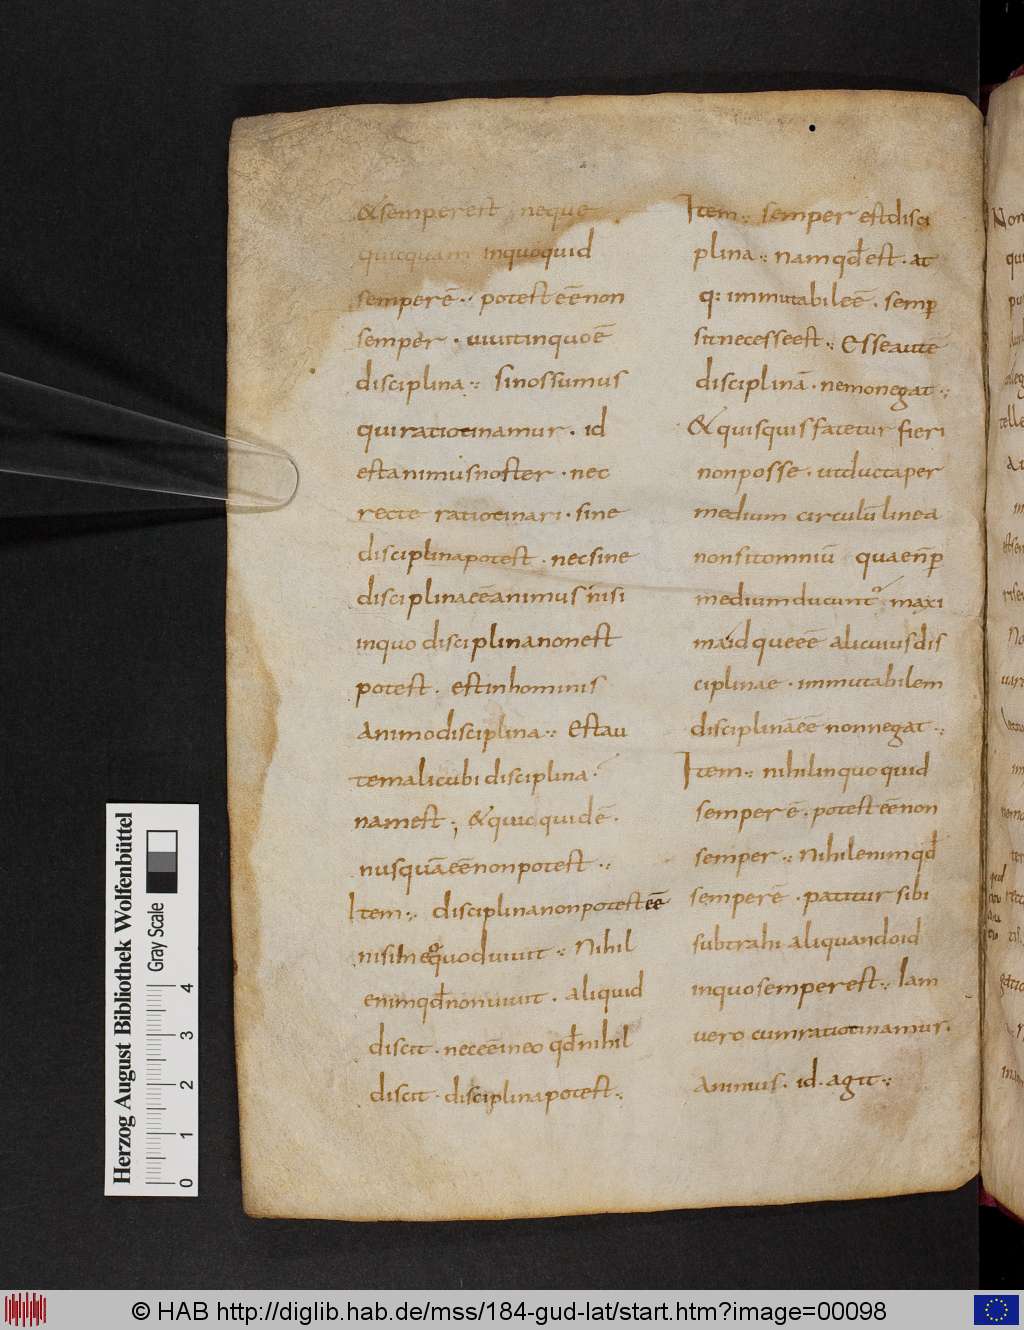 & semper est neque
quicquam inquoquid
semperē·· potesteēnon
semper · uiuitinquoē
disciplina·: sinossumus
quiratiocinamur. id
estanimusnoster · nec
recte ratiocinari · sine
disciplinapotest · necsine
disciplinaeēanimus nisi
inquo disciplinanonest
potest. estinhominis
animodisciplina·: Estau
temalicubi disciplina·
namest; &quicquidē·
nusquāeēnonpotest··
Item·: disciplinanonpotesteē
nisiineoquoduiuit·: Nihil
enimqđnonuiuit. aliquid
discit · neceēineo qđnihil
discit · disciplinapotest·:
Item·: semper estdisci
plina·: namqđest · at
q: immutabileē · semp
sitnecesseest·: Esseaute
disciplinā · nemonegat·:
&quisquisfatetur fieri
nonposse · utductaper
medium circulū linea
nonsitomniū quaenp
mediumducunt maxi
maidqueeē alicuiusdis
ciplinae · immutabilem
disciplināeē nonnegat·:
Item·: nihilinquoquid
semperē · potesteēnon
semper·: Nihilenimqđ
semperē · patitur sibi
subtrahi aliquandoid
inquosemperest·: Iam
uero cumratiocinamur.
animus. id. agit·:
Herzog August Bibliothek Wolfenbüttel
Gray Scale
0 1 2 3 4
© HAB http://diglib.hab.de/mss/184-gud-lat/start.htm?image=00098